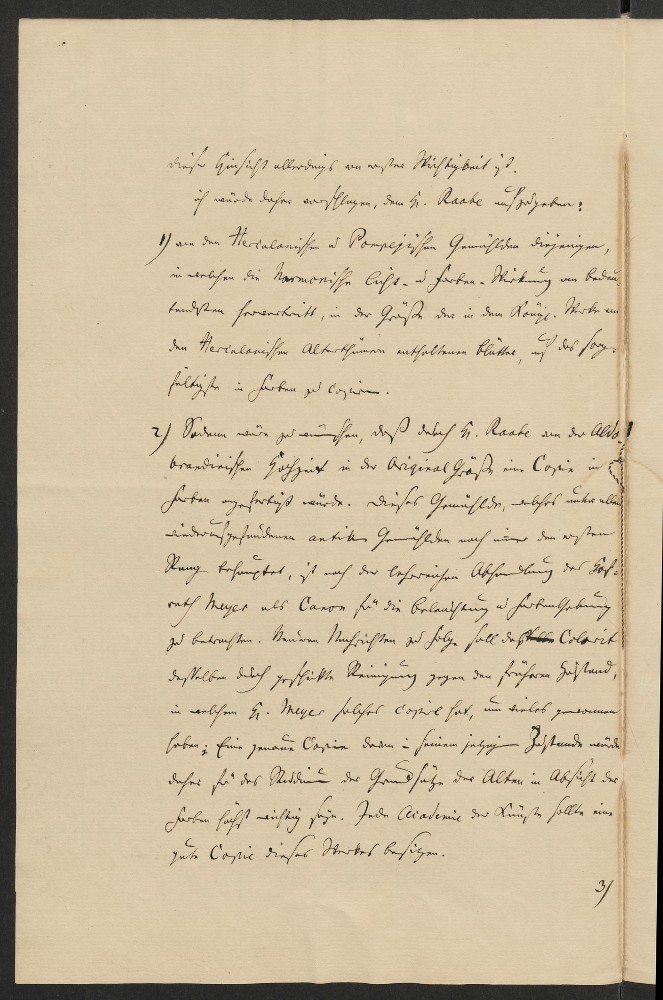 dieser Hinsicht allerdings von erster Wichtigkeit ist.
ich würde daher vorschlagen, dem H. Raabe aufzugeben:
1) von den Herculanischen u Pompejischen Gemählden diejenigen,
in welchen die harmonische Licht- u Farben-Wirkung am bedeu
tendsten hervortritt, in der Größe der in dem Königl. Werke von
den Herculanischen Alterthümern enthaltenen Blätter, auf das sorg-
fältigste in Farben zu copiren.
2) Sodann wäre zu wünschen, daß durch H. Raabe von der Aldo
brandinischen Hochzeit in der Original Größe eine Copie in
Farben angefertigt würde. Dieses Gemählde, welches unter allen
wiederaufgefundenen antiken Gemählden noch immer den ersten
Rang behauptet, ist nach der lehrreichen Abhandlung des Hof-
rath Meyer als Canon für die Beleuchtung u Farbenhebung
zu betrachten. Neueren Nachrichten zu Folge soll das Colorit
desselben durch geschickte Reinigung gegen den früheren Zustand,
in welchem H. Meyer solches copirt hat, um vieles gewonnen
haben; Eine genaue Copie davon in seinem jetzigen Zustande würde
daher für das Studium der Grundsätze der Alten in Absicht der
Farben höchst wichtig seyn. Jede Academie der Künste sollte eine
gute Copie dieses Werkes besitzen.
3)